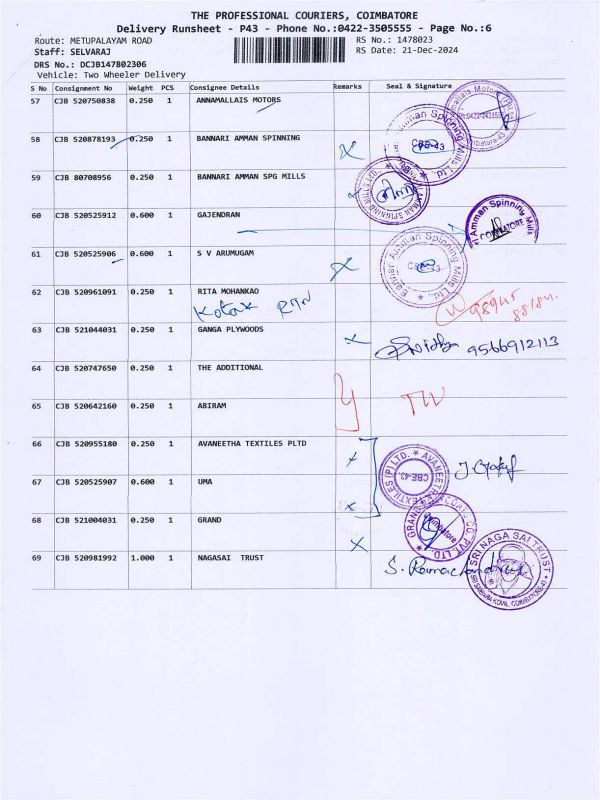 THE PROFESSIONAL COURIERS, COIMBATORE
Delivery Runsheet - P43 - Phone No.:0422-3505555 - Page No.:6
Route: METUPALAYAM ROAD RS No.: 1478023
Staff: SELVARAJ RS Date: 21-Dec-2024
DRS No.: DCJB147802306
Vehicle: Two Wheeler Delivery
S No Consignment No Weight PCS Consignee Details Remarks Seal & Signature
57 CJB 520750838 0.250 1 ANNAMALLAIS MOTORS
58 CJB 520878193 0.250 1 BANNARI AMMAN SPINNING
59 CJB 80708956 0.250 1 BANNARI AMMAN SPG MILLS
60 CJB 520525912 0.600 1 GAJENDRAN
Amman Spinning Mills
COIMBATORE
61 CJB 520525906 0.600 1 S V ARUMUGAM
Amman Spinning Mills Ltd.,
62 CJB 520961091 0.250 1 RITA MOHANKAO
Kotak
63 CJB 521044031 0.250 1 GANGA PLYWOODS
9566912113
64 CJB 520747650 0.250 1 THE ADDITIONAL
65 CJB 520642160 0.250 1 ABIRAM
66 CJB 520955180 0.250 1 AVANEETHA TEXTILES PLTD
AVANEETHA TEXTILES (P) LTD.
CBE-43.
67 CJB 520525907 0.600 1 UMA
68 CJB 521004031 0.250 1 GRAND
69 CJB 520981992 1.000 1 NAGASAI TRUST
SRI NAGA SAI TRUST